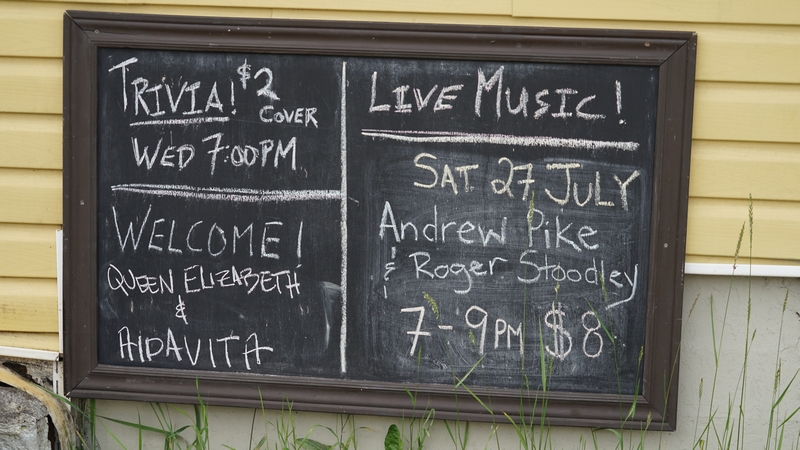 TRIVIA! $2
COVER
WED 7:00PM
WELCOME!
QUEEN ELIZABETH
&
AIDAVITA
LIVE MUSIC!
SAT 27 JULY
Andrew Pike
& Roger Stoodley
7-9PM $8